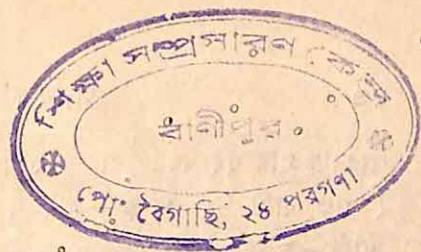 শিক্ষা সম্প্রসারণ কেন্দ্র
রাণীপুর
পোঃ বৈগাছি, ২৪ পরগণা